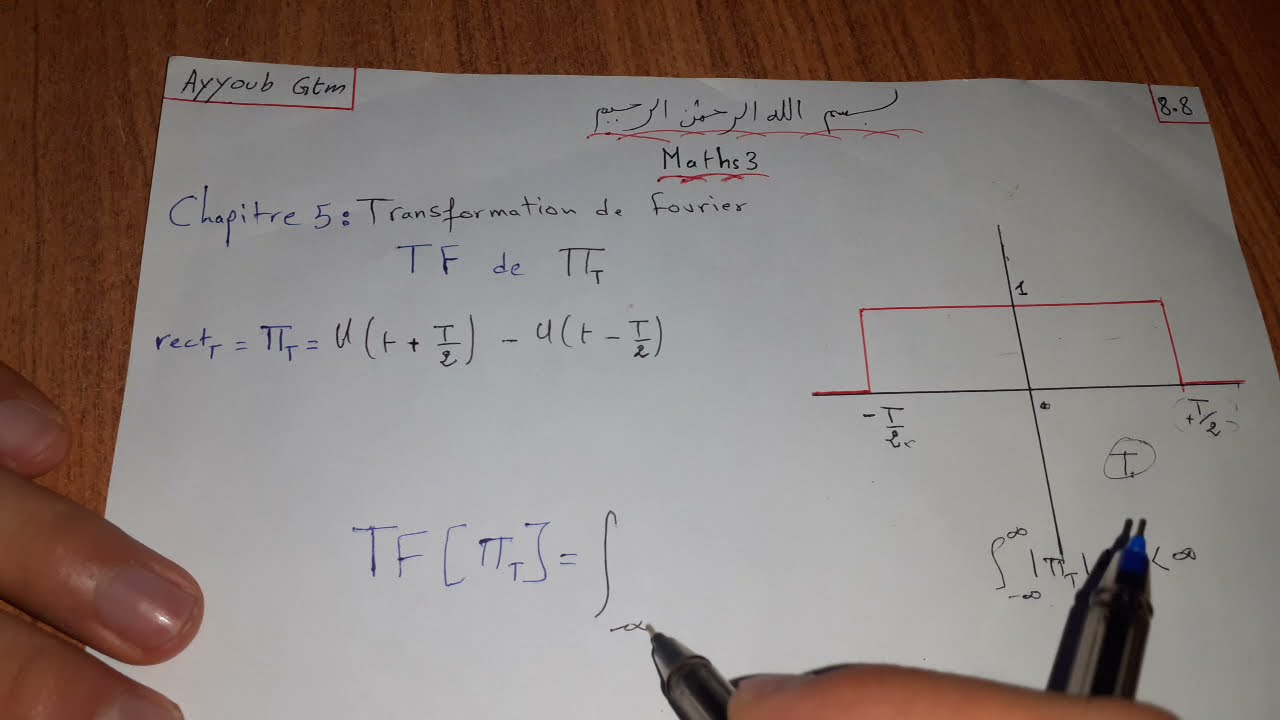 Ayyoub Gtm
8.8
بسم الله الرحمن الرحيم
Maths3
Chapitre 5: Transformation de Fourier
TF de Π_T
rect_T = Π_T = U(t + T/2) - U(t - T/2)
1
0
-T/2
+T/2
T
TF[Π_T] = ∫_-∞
∫_-∞^∞ |Π_T| < ∞